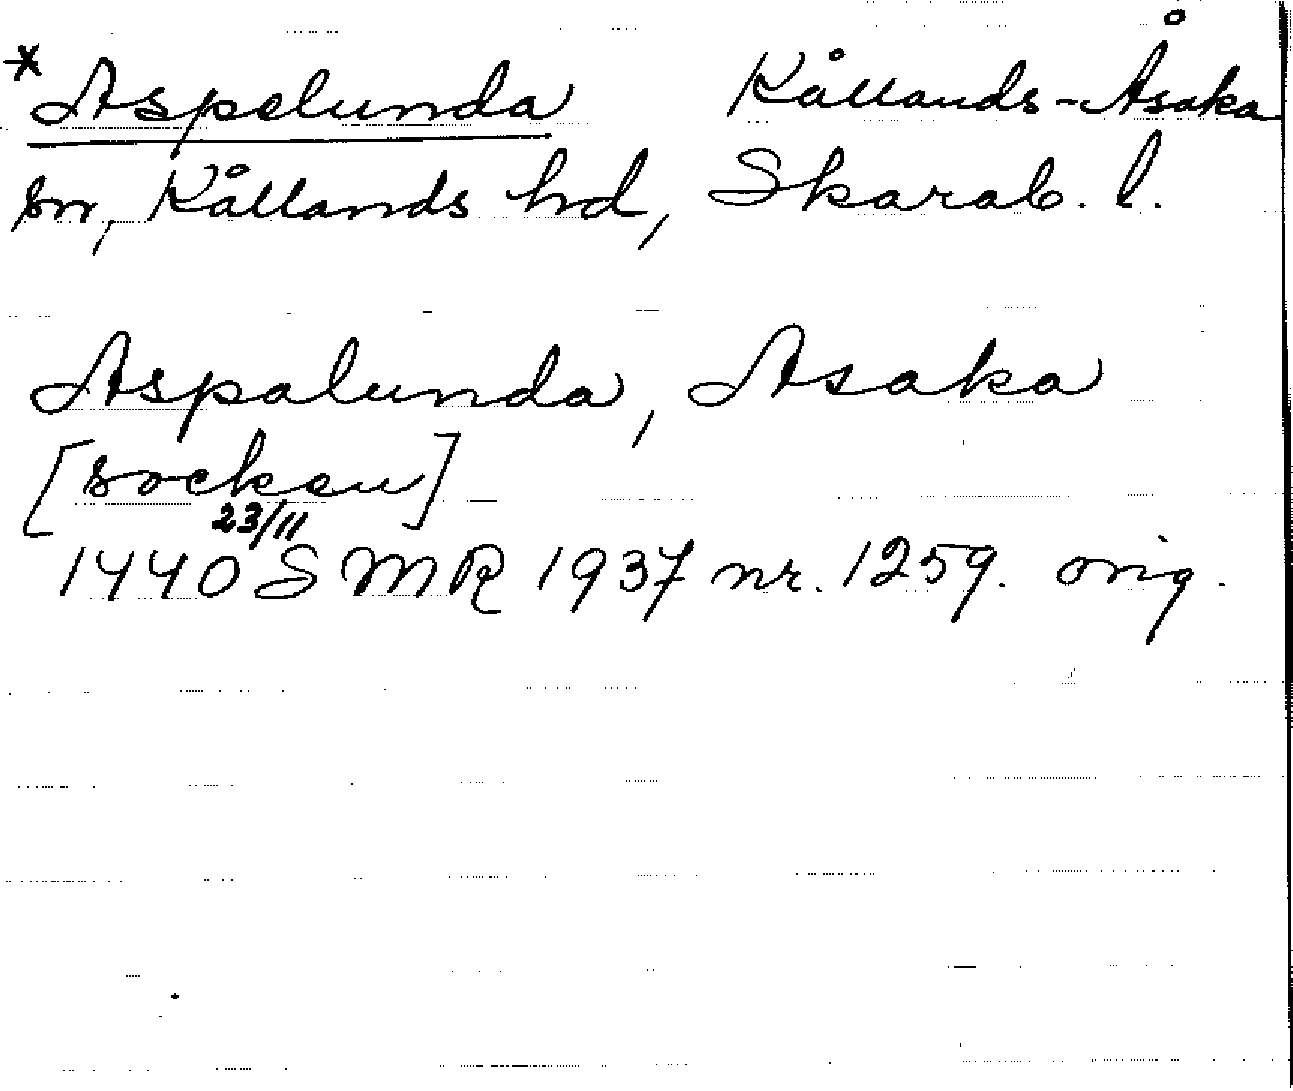 *Aspelunda Kållands-Åsaka
sn, Kållands hd, Skarab. l.
Aspalunda, Asaka
[socken]
1440 23/11 SMR 1937 nr. 1259. orig.